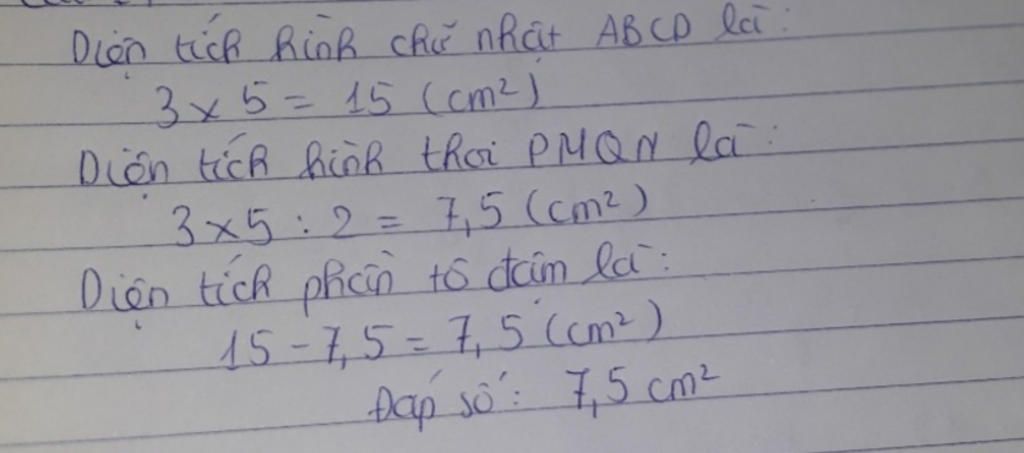 Diện tích hình chữ nhật ABCD là:
3 x 5 = 15 (cm²)
Diện tích hình thoi PMQN là:
3 x 5 : 2 = 7,5 (cm²)
Diện tích phần tô đậm là:
15 - 7,5 = 7,5 (cm²)
Đáp số: 7,5 cm²